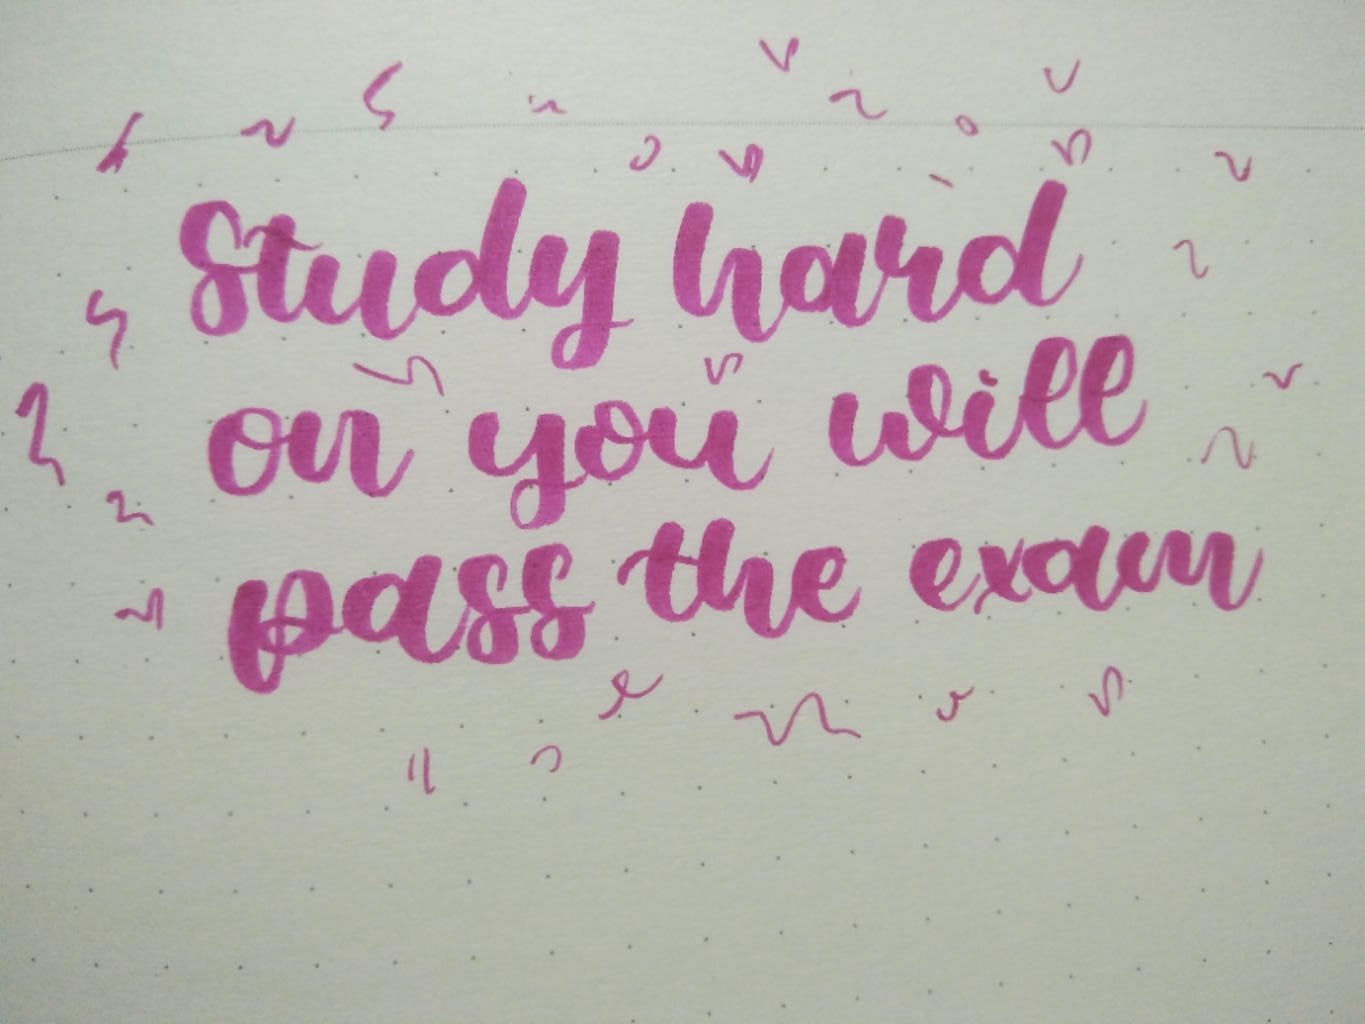 Study hard
on you will
pass the exam